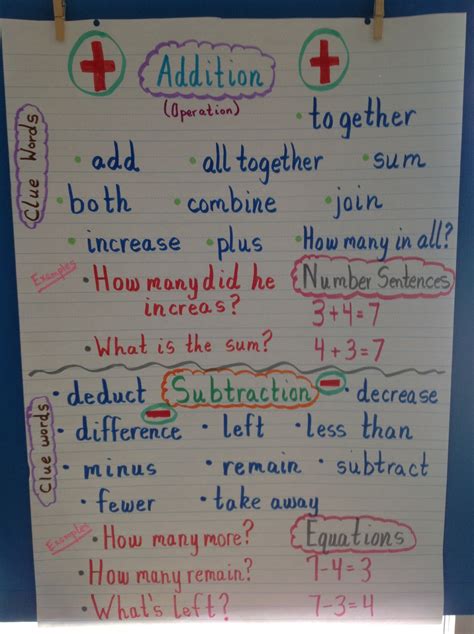 + Addition +
(Operation)
Clue Words
• together
• add • all together • sum
• both • combine • join
• increase • plus • How many in all?
Examples
• How many did he
increas?
Number Sentences
3+4=7
• What is the sum?
4+3=7
• deduct Subtraction - • decrease
-
Clue words
• difference • left • less than
• minus • remain • subtract
• fewer • take away
Examples
• How many more?
Equations
• How many remain?
7-4=3
• What's left?
7-3=4